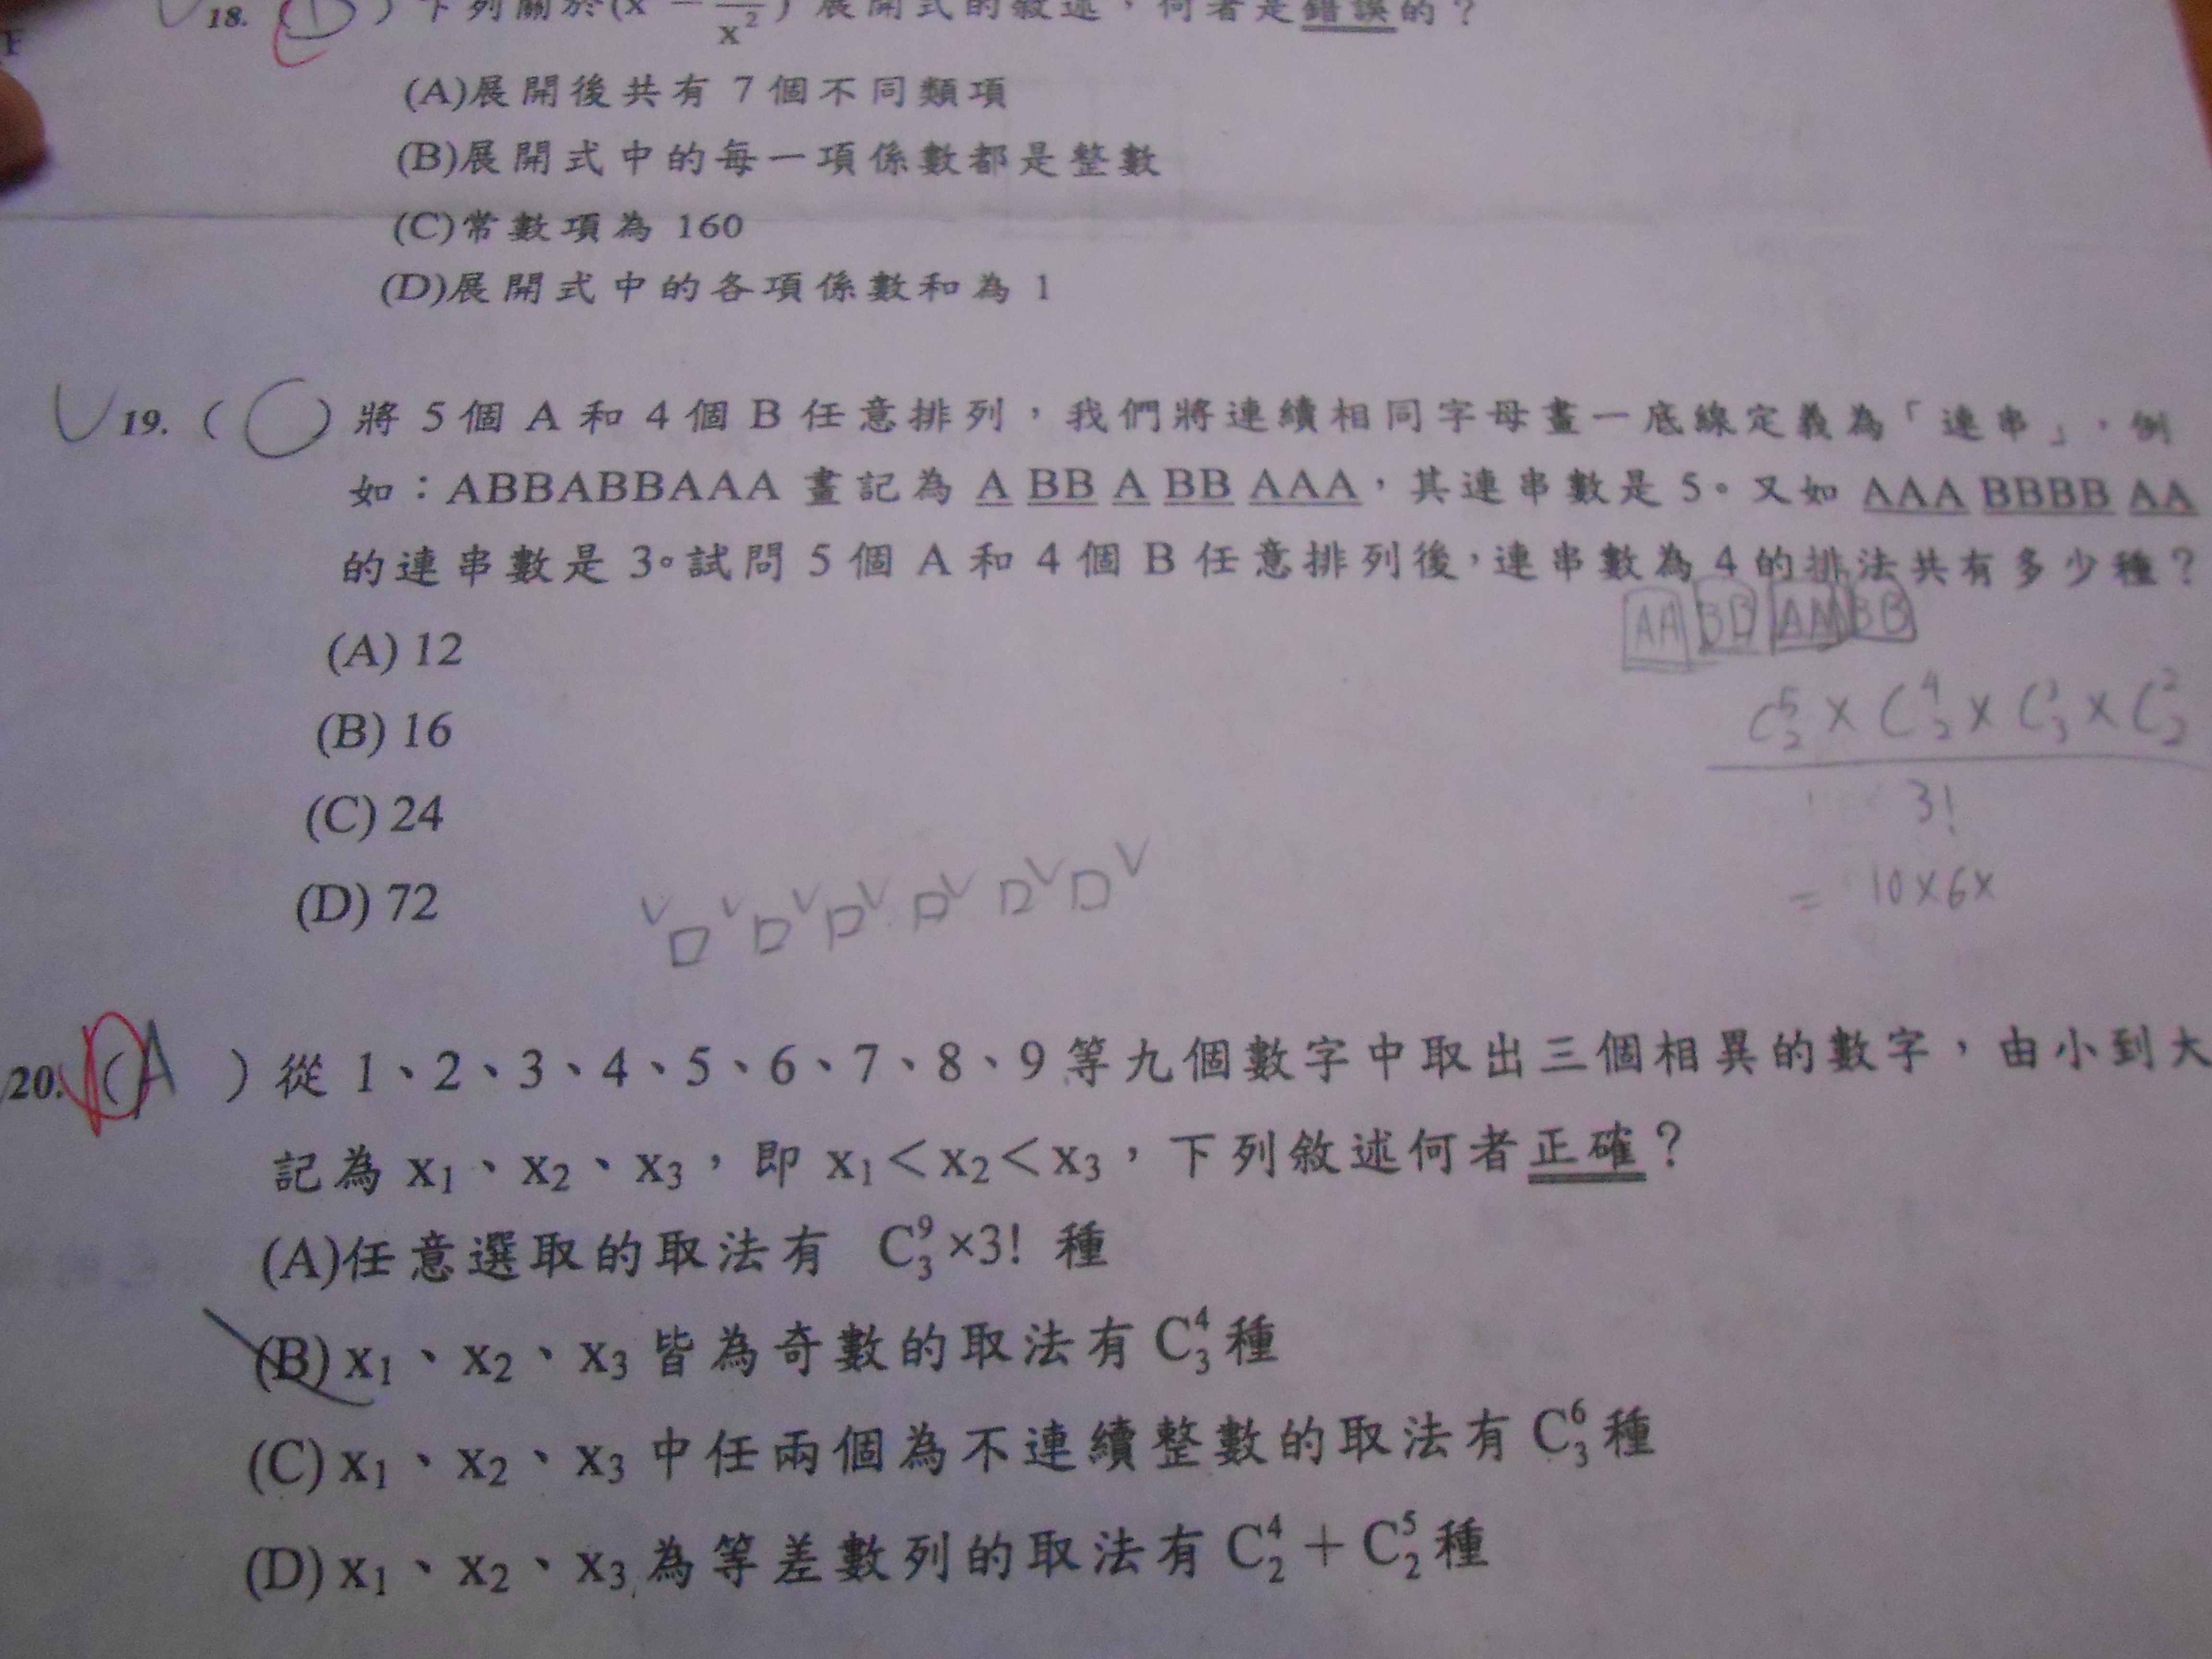 18. ( D ) 下列關於(x − /x²) 展開式的敘述，何者是錯誤的？
(A)展開後共有 7 個不同類項
(B)展開式中的每一項係數都是整數
(C)常數項為 160
(D)展開式中的各項係數和為 1
19. ( ) 將 5 個 A 和 4 個 B 任意排列，我們將連續相同字母畫一底線定義為「連串」，例
如：ABBABBAAA 畫記為 A BB A BB AAA，其連串數是 5。又如 AAA BBBB AA
的連串數是 3。試問 5 個 A 和 4 個 B 任意排列後，連串數為 4 的排法共有多少種？
AA BB AA BB
(A) 12
(B) 16
C⁵₂ × C⁴₂ × C³₃ × C²₂
(C) 24
3!
(D) 72
= 10×6×
20. ( A ) 從 1、2、3、4、5、6、7、8、9 等九個數字中取出三個相異的數字，由小到大
記為 x₁、x₂、x₃，即 x₁＜x₂＜x₃，下列敘述何者正確？
(A)任意選取的取法有 C⁹₃×3! 種
(B) x₁、x₂、x₃ 皆為奇數的取法有 C⁴₃ 種
(C) x₁、x₂、x₃ 中任兩個為不連續整數的取法有 C⁶₃ 種
(D) x₁、x₂、x₃ 為等差數列的取法有 C⁴₂＋C⁵₂ 種